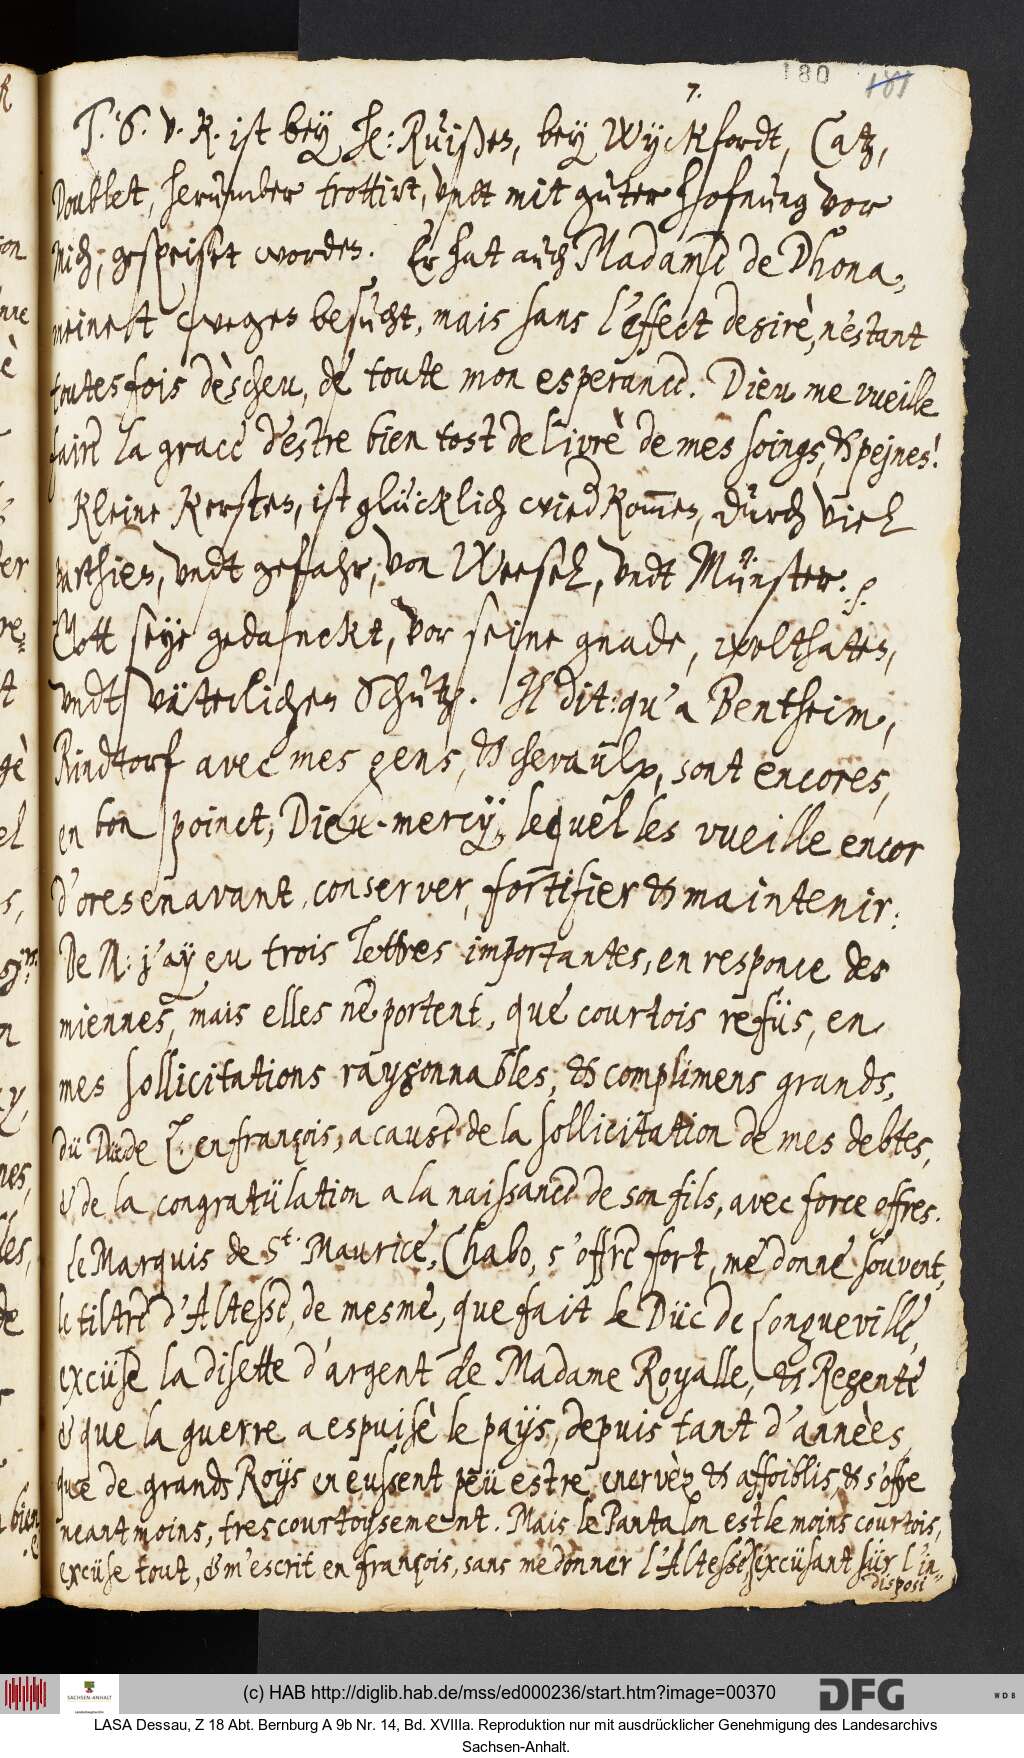 180 181
7.
T. S. v. R. ist bey H: Ruißes, bey Wyckfordt, Catz,
Doublet, herumber trottirt, undt mit guter hofnung vor
mich, gespeiset worden. Er hat auch Madame de Dhona,
meinet wegen besucht, mais sans l'effect desirè, n'estant
toutesfois dèscheu, de toute mon esperance. Dieu me vueille
faire la grace d'estre bien tost delivrè de mes soings, & pejnes!
Kleine Kersten, ist glücklich wiedkommen, durch viel
parthien, undt gefahr, von Weesel, undt Münster. p.
Gott seye gedancket, vor seine gnade, wolthaten,
undt väterlichen Schutz. Il dit: qu'a Bentheim,
Rindtorf avec mes gens, & chevaulx, sont encores,
en bon poinct, Dieu-mercy, lequel les vueille encor
d'oresenavant, conserver, fortifier & maintenir:
De M: j'ay eu trois lettres importantes, en responce des
miennes, mais elles ne portent, que courtois refüs, en
mes sollicitations raysonnables, & complimens grands,
dü Düc de L. en françois, a cause de la sollicitation de mes debtes,
& de la congratülation a la naissance de son fils, avec force offres.
Le Marquis de St. Maurice, Chabo, s'offre fort, me donne souvent,
le tiltre d'Altesse, de mesme, que fait le Düc de Longueville,
excüse la disette d'argent de Madame Royalle, & Regente
& que la guerre a espuisè le païs, depuis tant d'annèes,
que de grands Roys en eussent peü estre enervèz & affoiblis, & s'offre
neantmoins, trescourtoysement. Mais le Pantalon est le moins courtois,
excüse tout, & m'escrit en françois, sans me donner l'Altesse, s'excüsant sür l'in-
disposi
(c) HAB http://diglib.hab.de/mss/ed000236/start.htm?image=00370
SACHSEN-ANHALT
DFG
WDB
LASA Dessau, Z 18 Abt. Bernburg A 9b Nr. 14, Bd. XVIIIa. Reproduktion nur mit ausdrücklicher Genehmigung des Landesarchivs
Sachsen-Anhalt.